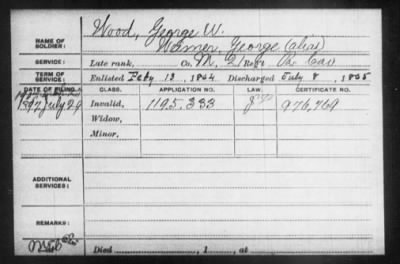 Wood, George W.
NAME OF SOLDIER:
Warner, George (alias)
SERVICE: Late rank, Co. M, 2 Reg't Va Cav
TERM OF SERVICE: Enlisted Feby 13, 1864 Discharged July 8, 1865
DATE OF FILING. CLASS. APPLICATION NO. LAW. CERTIFICATE NO.
1897 July 29 Invalid, 1195,333 976,769
Widow,
Minor,
ADDITIONAL SERVICES:
REMARKS:
Died , 1 , at